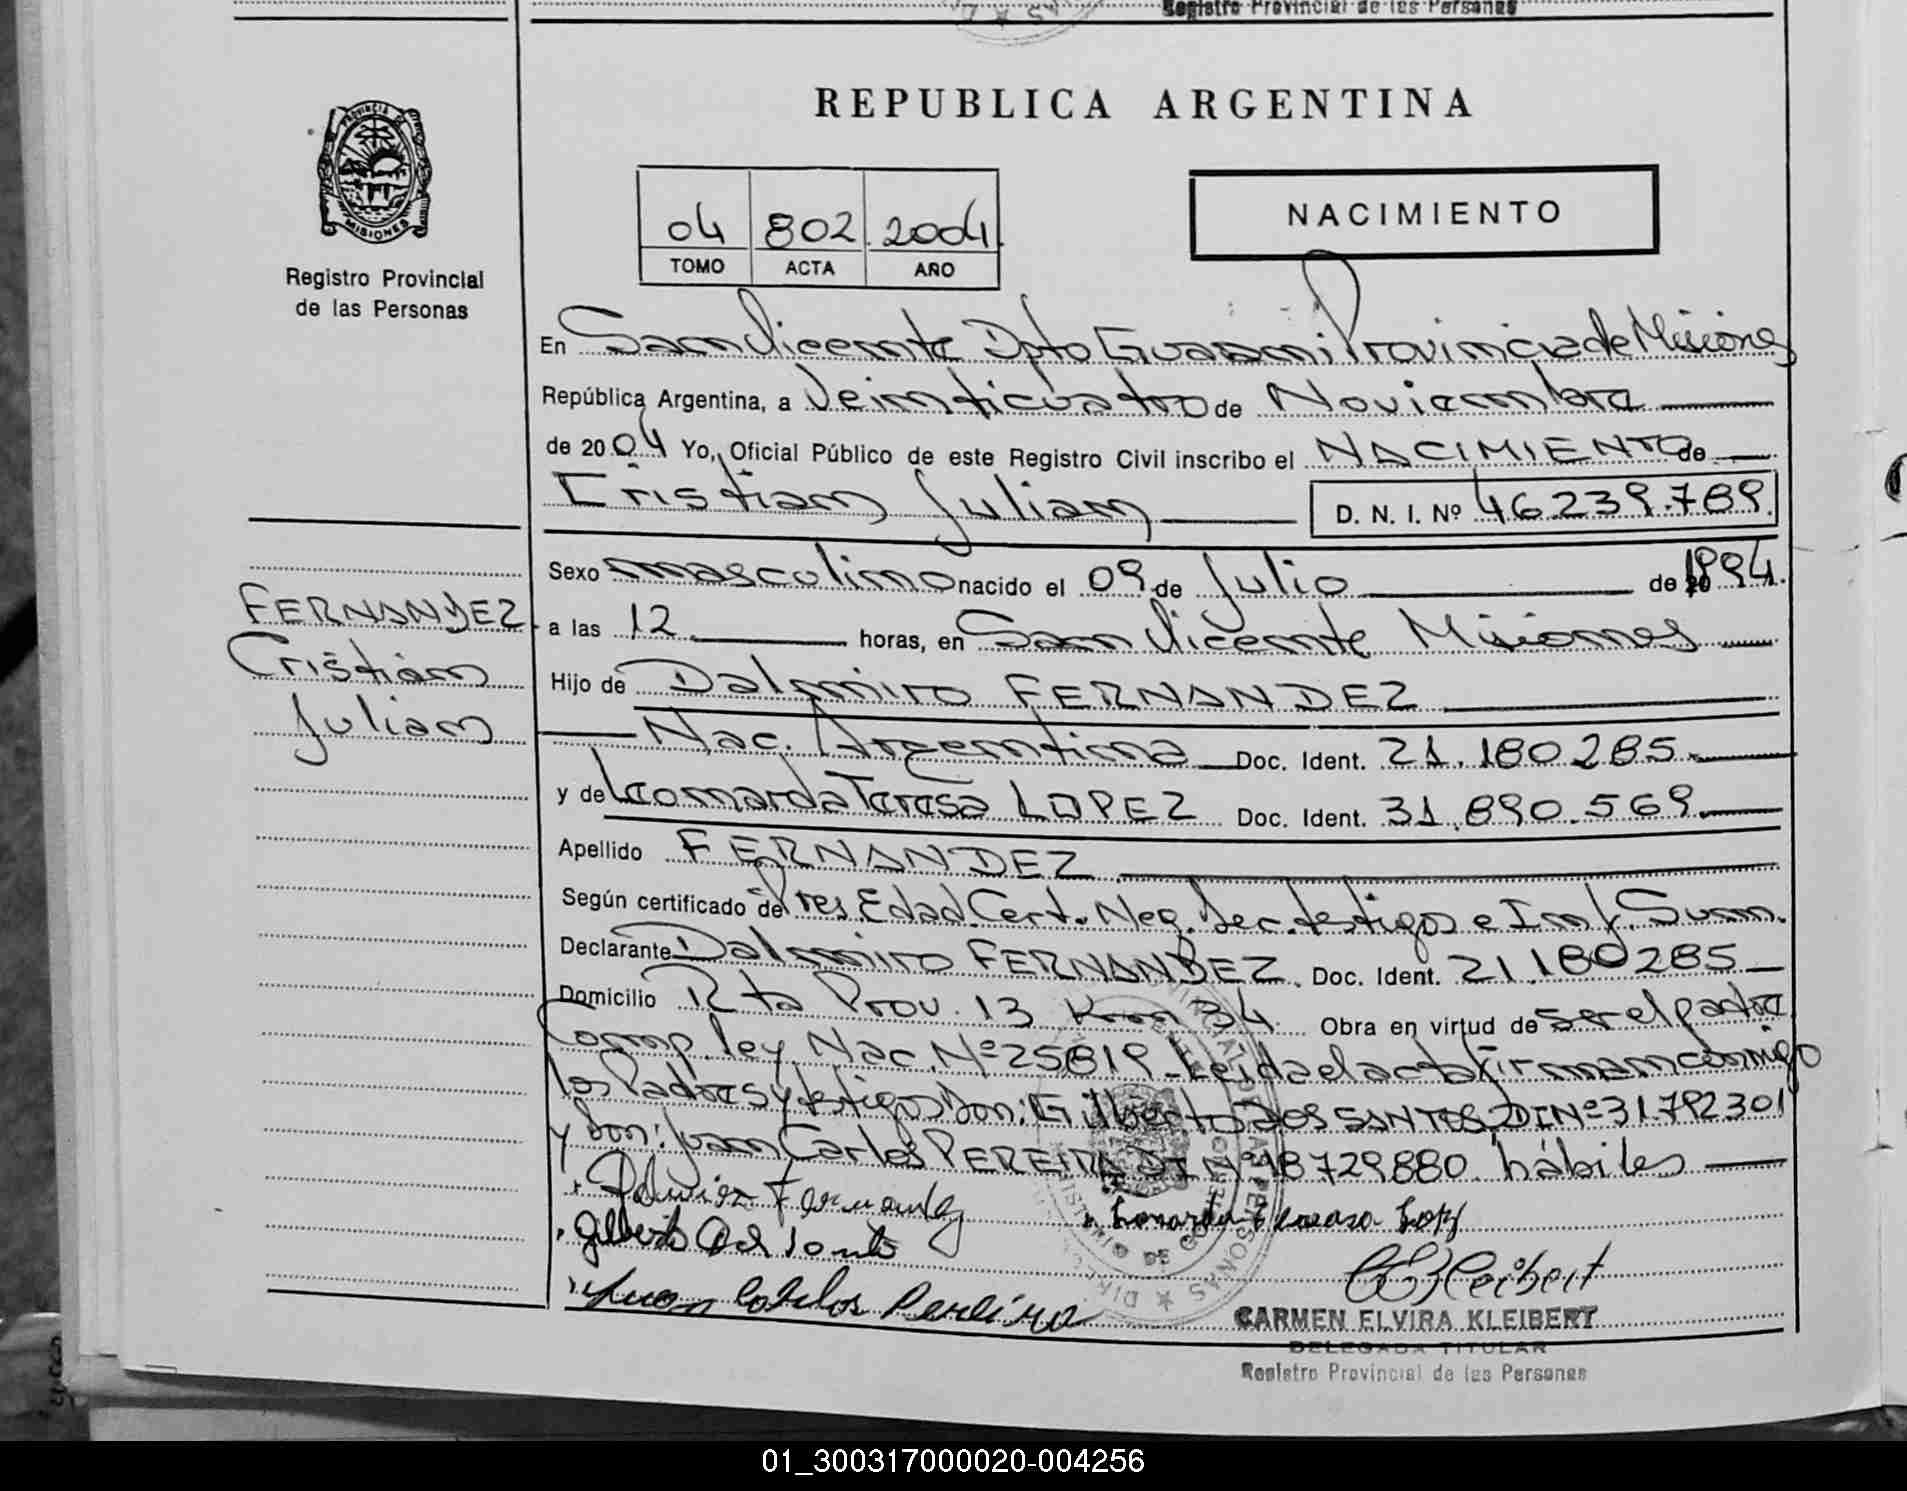 Registro Provincial de las Personas
REPUBLICA ARGENTINA
PROVINCIA DE
MISIONES
Registro Provincial
de las Personas
04 802 2004
TOMO ACTA AÑO
NACIMIENTO
En San Vicente Dpto Guarani Provincia de Misiones
República Argentina, a Veinticuatro de Noviembre
de 2004 Yo, Oficial Público de este Registro Civil inscribo el NACIMIENTO de
Cristian Julian D. N. I. Nº 46.239.789
Sexo masculino nacido el 09 de Julio de 1994.
FERNANDEZ
Cristian
Julian
a las 12 horas, en San Vicente Misiones
Hijo de Dalmiro FERNANDEZ
Nac. Argentina Doc. Ident. 21.180.285
y de Leonarda Teresa LOPEZ Doc. Ident. 31.890.569
Apellido FERNANDEZ
Según certificado de Pres. Edad. Cert. Neg. Dec. testigos e Inf. Sum.
Declarante Dalmiro FERNANDEZ. Doc. Ident. 21180285
Domicilio Rta Prov. 13 Km 34 Obra en virtud de ser el padre
Comp. ley Nac. Nº 25819 - Leida el acta firman conmigo
los Padres y testigos Don: Gilberto DOS SANTOS DI Nº 31792301
y Don: Juan Carlos PEREIRA DI Nº 18729880 hábiles
CARMEN ELVIRA KLEIBERT
DELEGADA TITULAR
Registro Provincial de las Personas
01_300317000020-004256